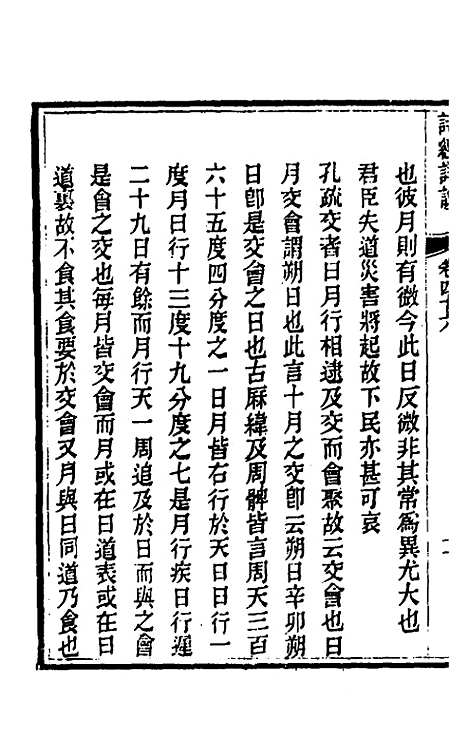 也彼月則有微今此日反微非其常爲異尤大也
君臣失道災害將起故下民亦甚可哀
孔疏交者日月行相逮及交而會聚故云交會也日
月交會謂朔日也此言十月之交卽云朔日辛卯朔
日卽是交會之日也古厤緯及周髀皆言周天三百
六十五度四分度之一日月皆右行於天日日行一
度月日行十三度十九分度之七是月行疾日行遲
二十九日有餘而月行天一周追及於日而與之會
是會之交也每月皆交會而月或在日道表或在日
道裏故不食其食要於交會又月與日同道乃食也